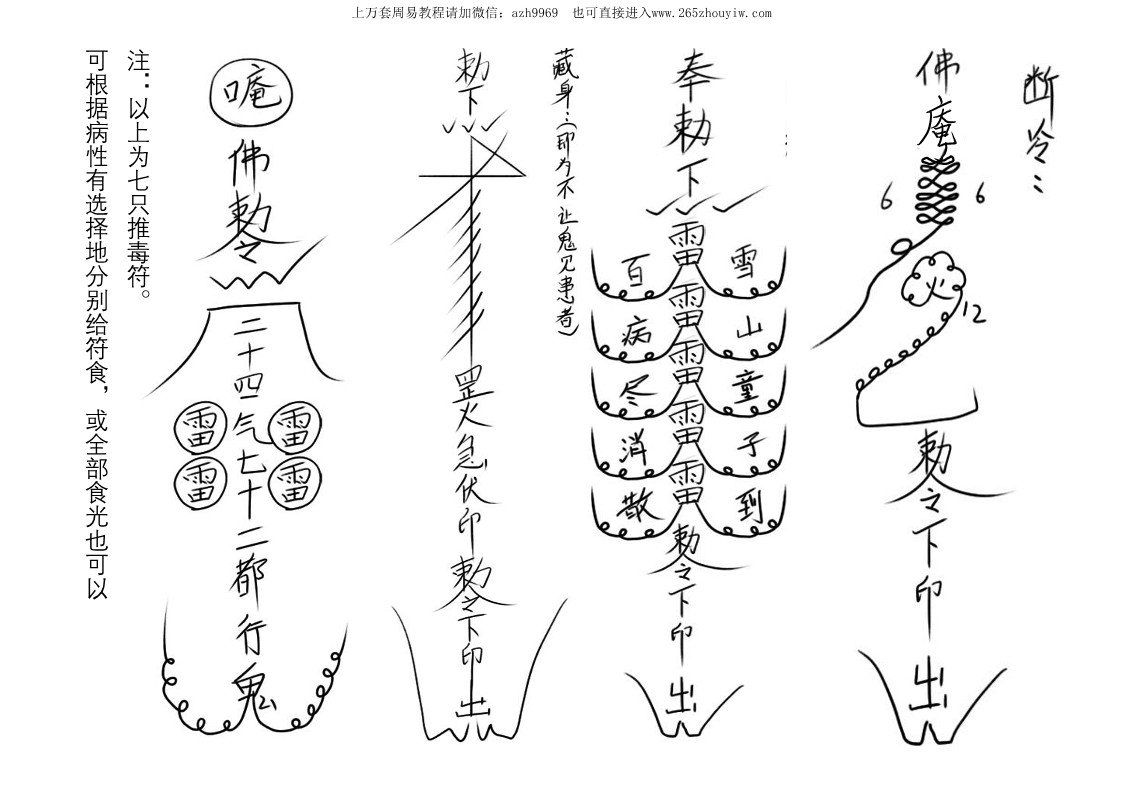 上万套周易教程请加微信：azh9969 也可直接进入www.265zhouyiw.com
断冷：
佛
庵
6 6
火
12
敕令下印出
奉敕下
雷雷雷雷雷
雪山童子到
百病尽消散
敕令下印出
藏身：（印为不让鬼见患者）
敕下
罡火急伏印敕令下印出
唵
佛敕令
二十四气七十二都行鬼
雷 雷
雷 雷
注：以上为七只推毒符。
可根据病性有选择地分别给符食，或全部食光也可以